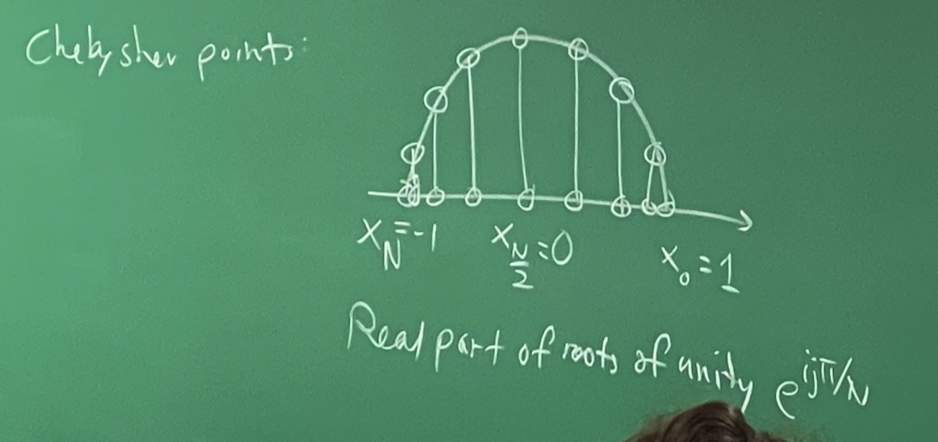 Chebyshev points:
x_N = -1  x_{N/2} = 0  x_0 = 1
Real part of roots of unity e^{ijπ/N}